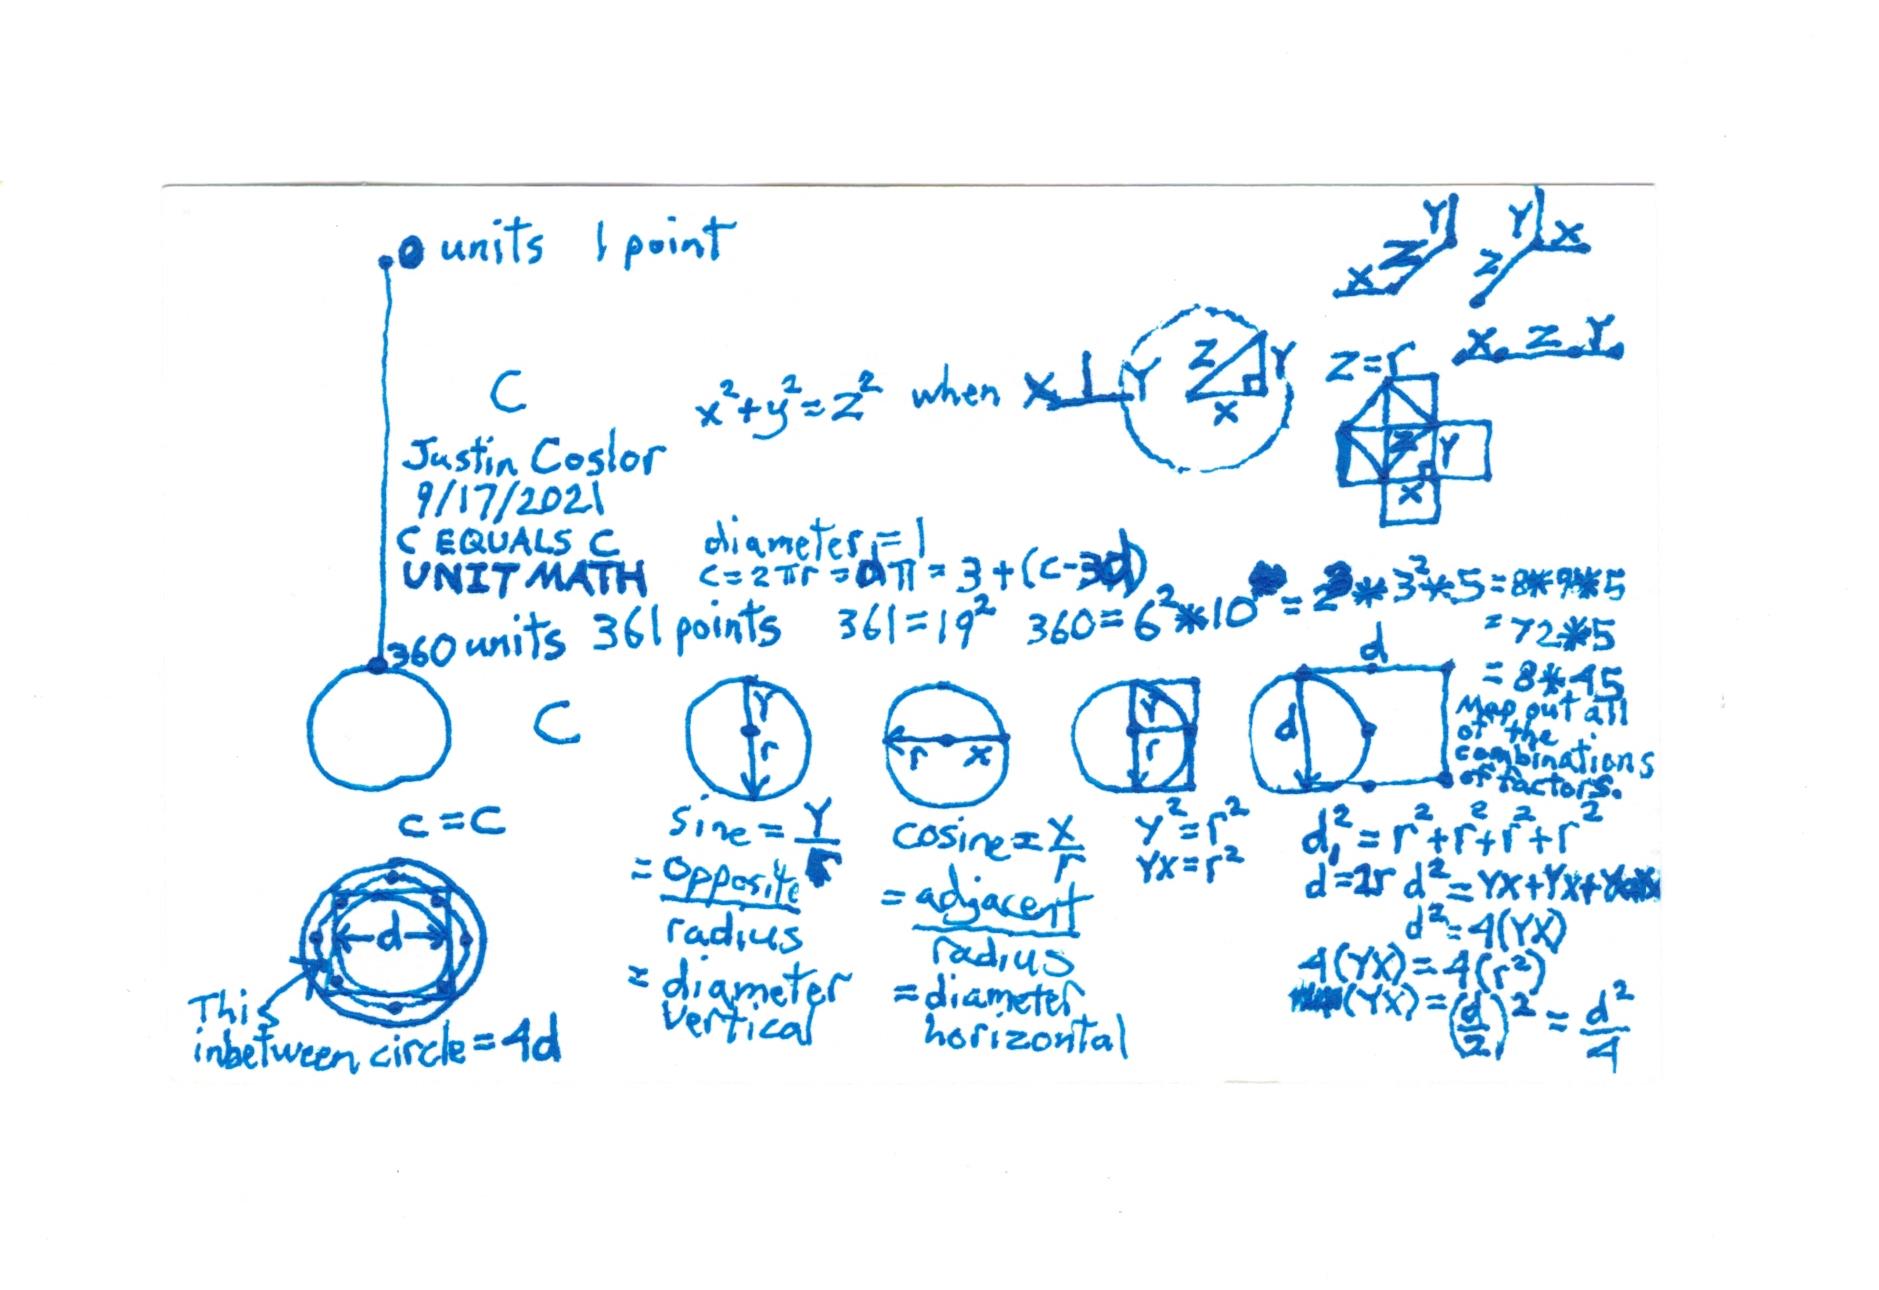 0 units 1 point
Y
Z
X
Y
X
Z
X Z Y
C
x²+y²=z² when X Y
Z
Y
X
Z=r
Z
Y
X
Justin Coslor
9/17/2021
C EQUALS C
UNIT MATH
diameter = 1
c=2πr=dπ=3+(c-3d)
360 units 361 points 361=19² 360=6²*10 =2³*3²*5=8*9*5
=72*5
=8*45
Map out all
of the
combinations
of factors.
C
Y
r
r X
Y
r
d
d
c=c
sine = Y/r
= opposite/radius
= diameter
vertical
cosine = X/r
= adjacent/radius
= diameter
horizontal
Y²=r²
YX=r²
d²=r²+r²+r²+r²
d=2r d²=YX+YX+
d²=4(YX)
4(YX)=4(r²)
(YX)=(d/2)²=d²/4
d
This
inbetween circle=4d